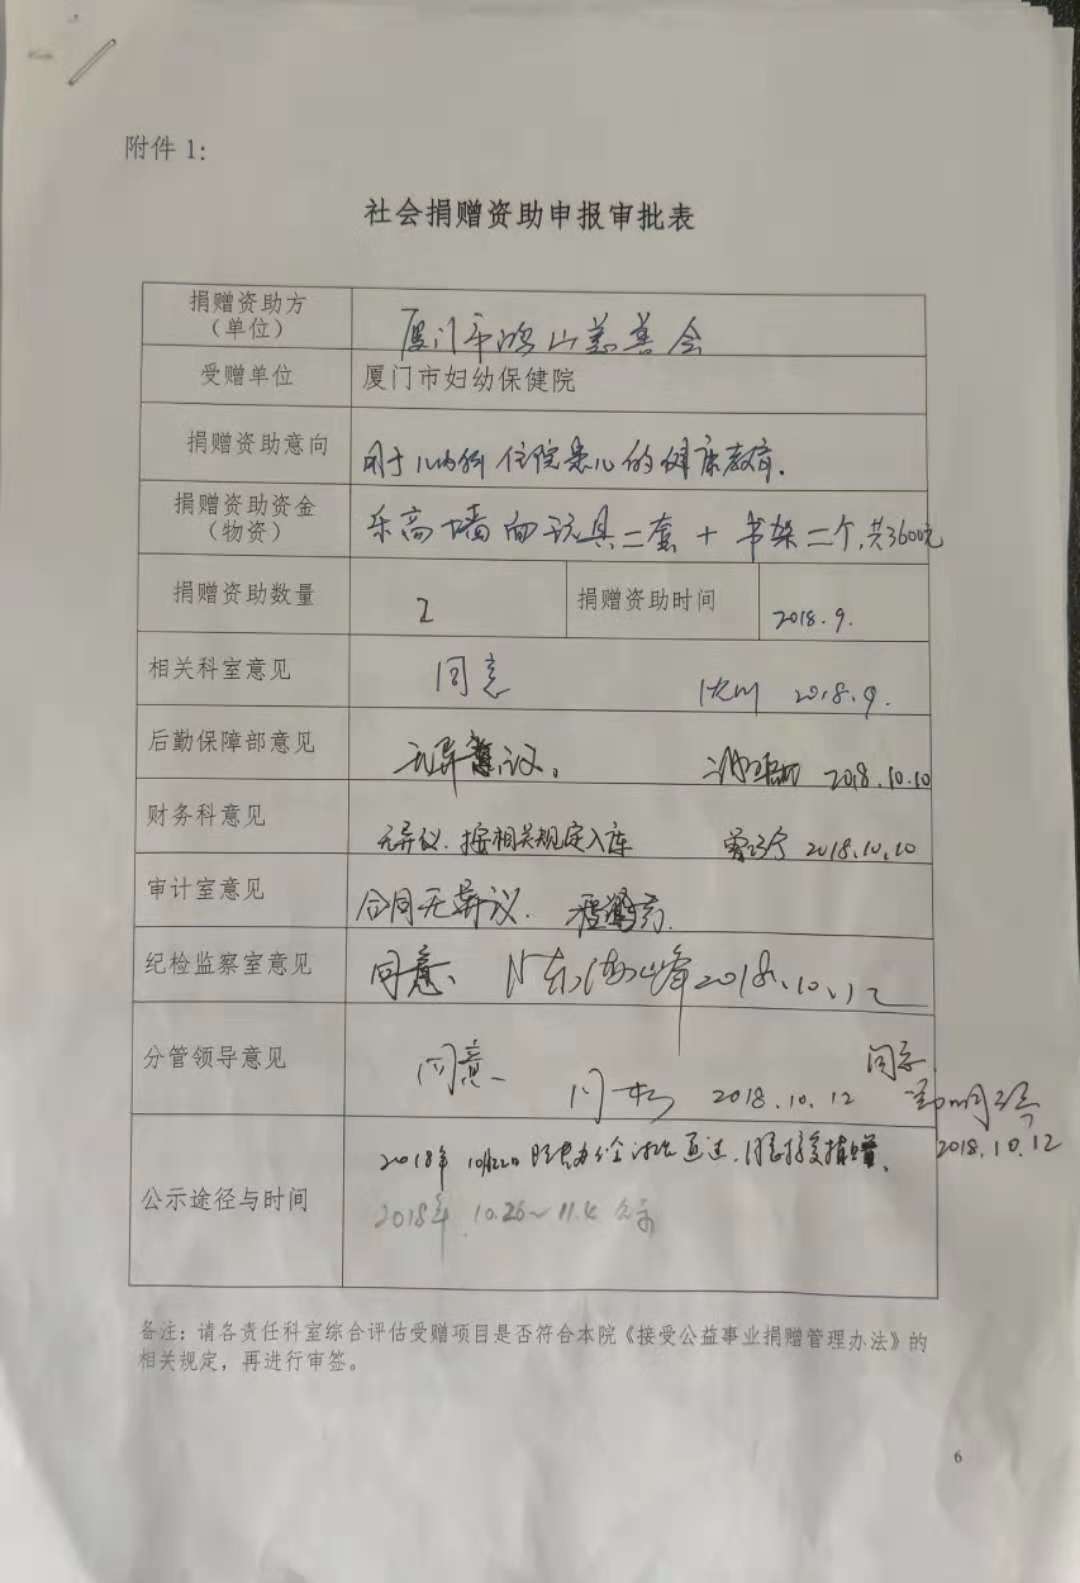 附件 1:
社会捐赠资助申报审批表
捐赠资助方
（单位）
厦门市鸿山慈善会
受赠单位
厦门市妇幼保健院
捐赠资助意向
用于儿内科住院患儿的健康教育.
捐赠资助资金
（物资）
乐高墙面玩具二套 + 书架二个,共3600元
捐赠资助数量
2
捐赠资助时间
2018.9.
相关科室意见
同意
2018.9.
后勤保障部意见
无异议。
2018.10.10
财务科意见
无异议.按相关规定入库
2018.10.10
审计室意见
合同无异议.
纪检监察室意见
同意、
2018.10.12
分管领导意见
同意
2018.10.12
同意
2018.10.12
公示途径与时间
2018年10月22日 院长办公会讨论通过.同意接受捐赠.
2018年 10.26～11.4 公示
备注：请各责任科室综合评估受赠项目是否符合本院《接受公益事业捐赠管理办法》的
相关规定，再进行审签。
6